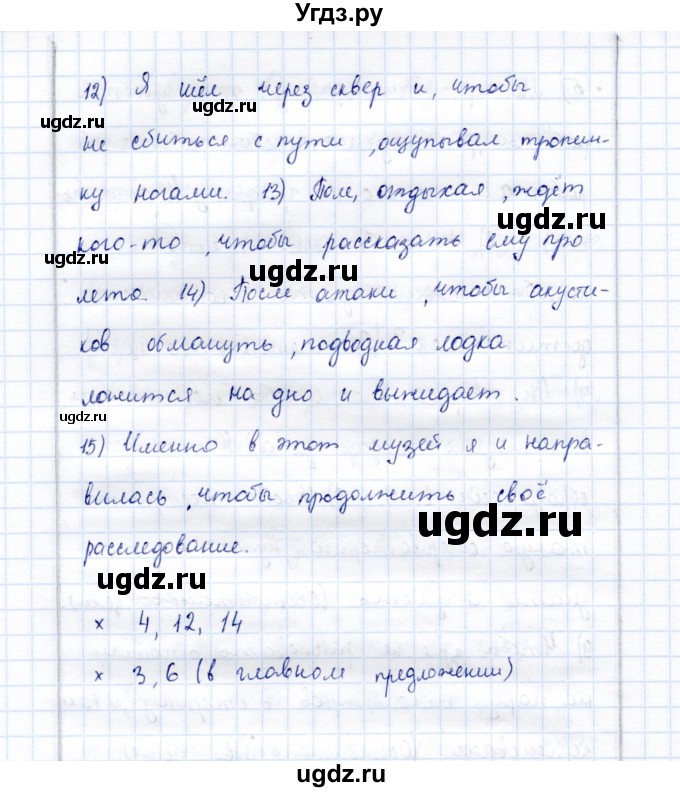 Угдз.ру
12) Я шёл через сквер и, чтобы
ugdz.ru
ugdz.ru
не сбиться с пути, ощупывал тропин-
ку ногами. 13) Поле, отдыхая, ждёт
ugdz.ru
кого-то, чтобы рассказать ему про
ugdz.ru
ugdz.ru
лето. 14) После атаки, чтобы акусти-
ков обмануть, подводная лодка
ложится на дно и выжидает.
ugdz.ru
15) Именно в этот музей я и напра-
вилась, чтобы продолжить своё
ugdz.ru
расследование.
ugdz.ru
× 4, 12, 14
× 3, 6 (в главном предложении)
ugdz.ru
ugdz.ru